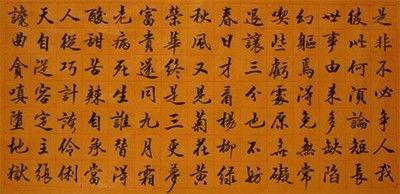 是非不必爭人我
彼此何須論短長
世事由來多缺陷
幻軀焉得免無常
喫些虧處原無礙
退讓三分也不妨
春日才看楊柳綠
秋風又見菊花黃
榮華終是三更夢
富貴還同九月霜
老病死生誰替得
酸甜苦辣自承當
人從巧計誇伶俐
天自從容定主張
諂曲貪嗔墮地獄